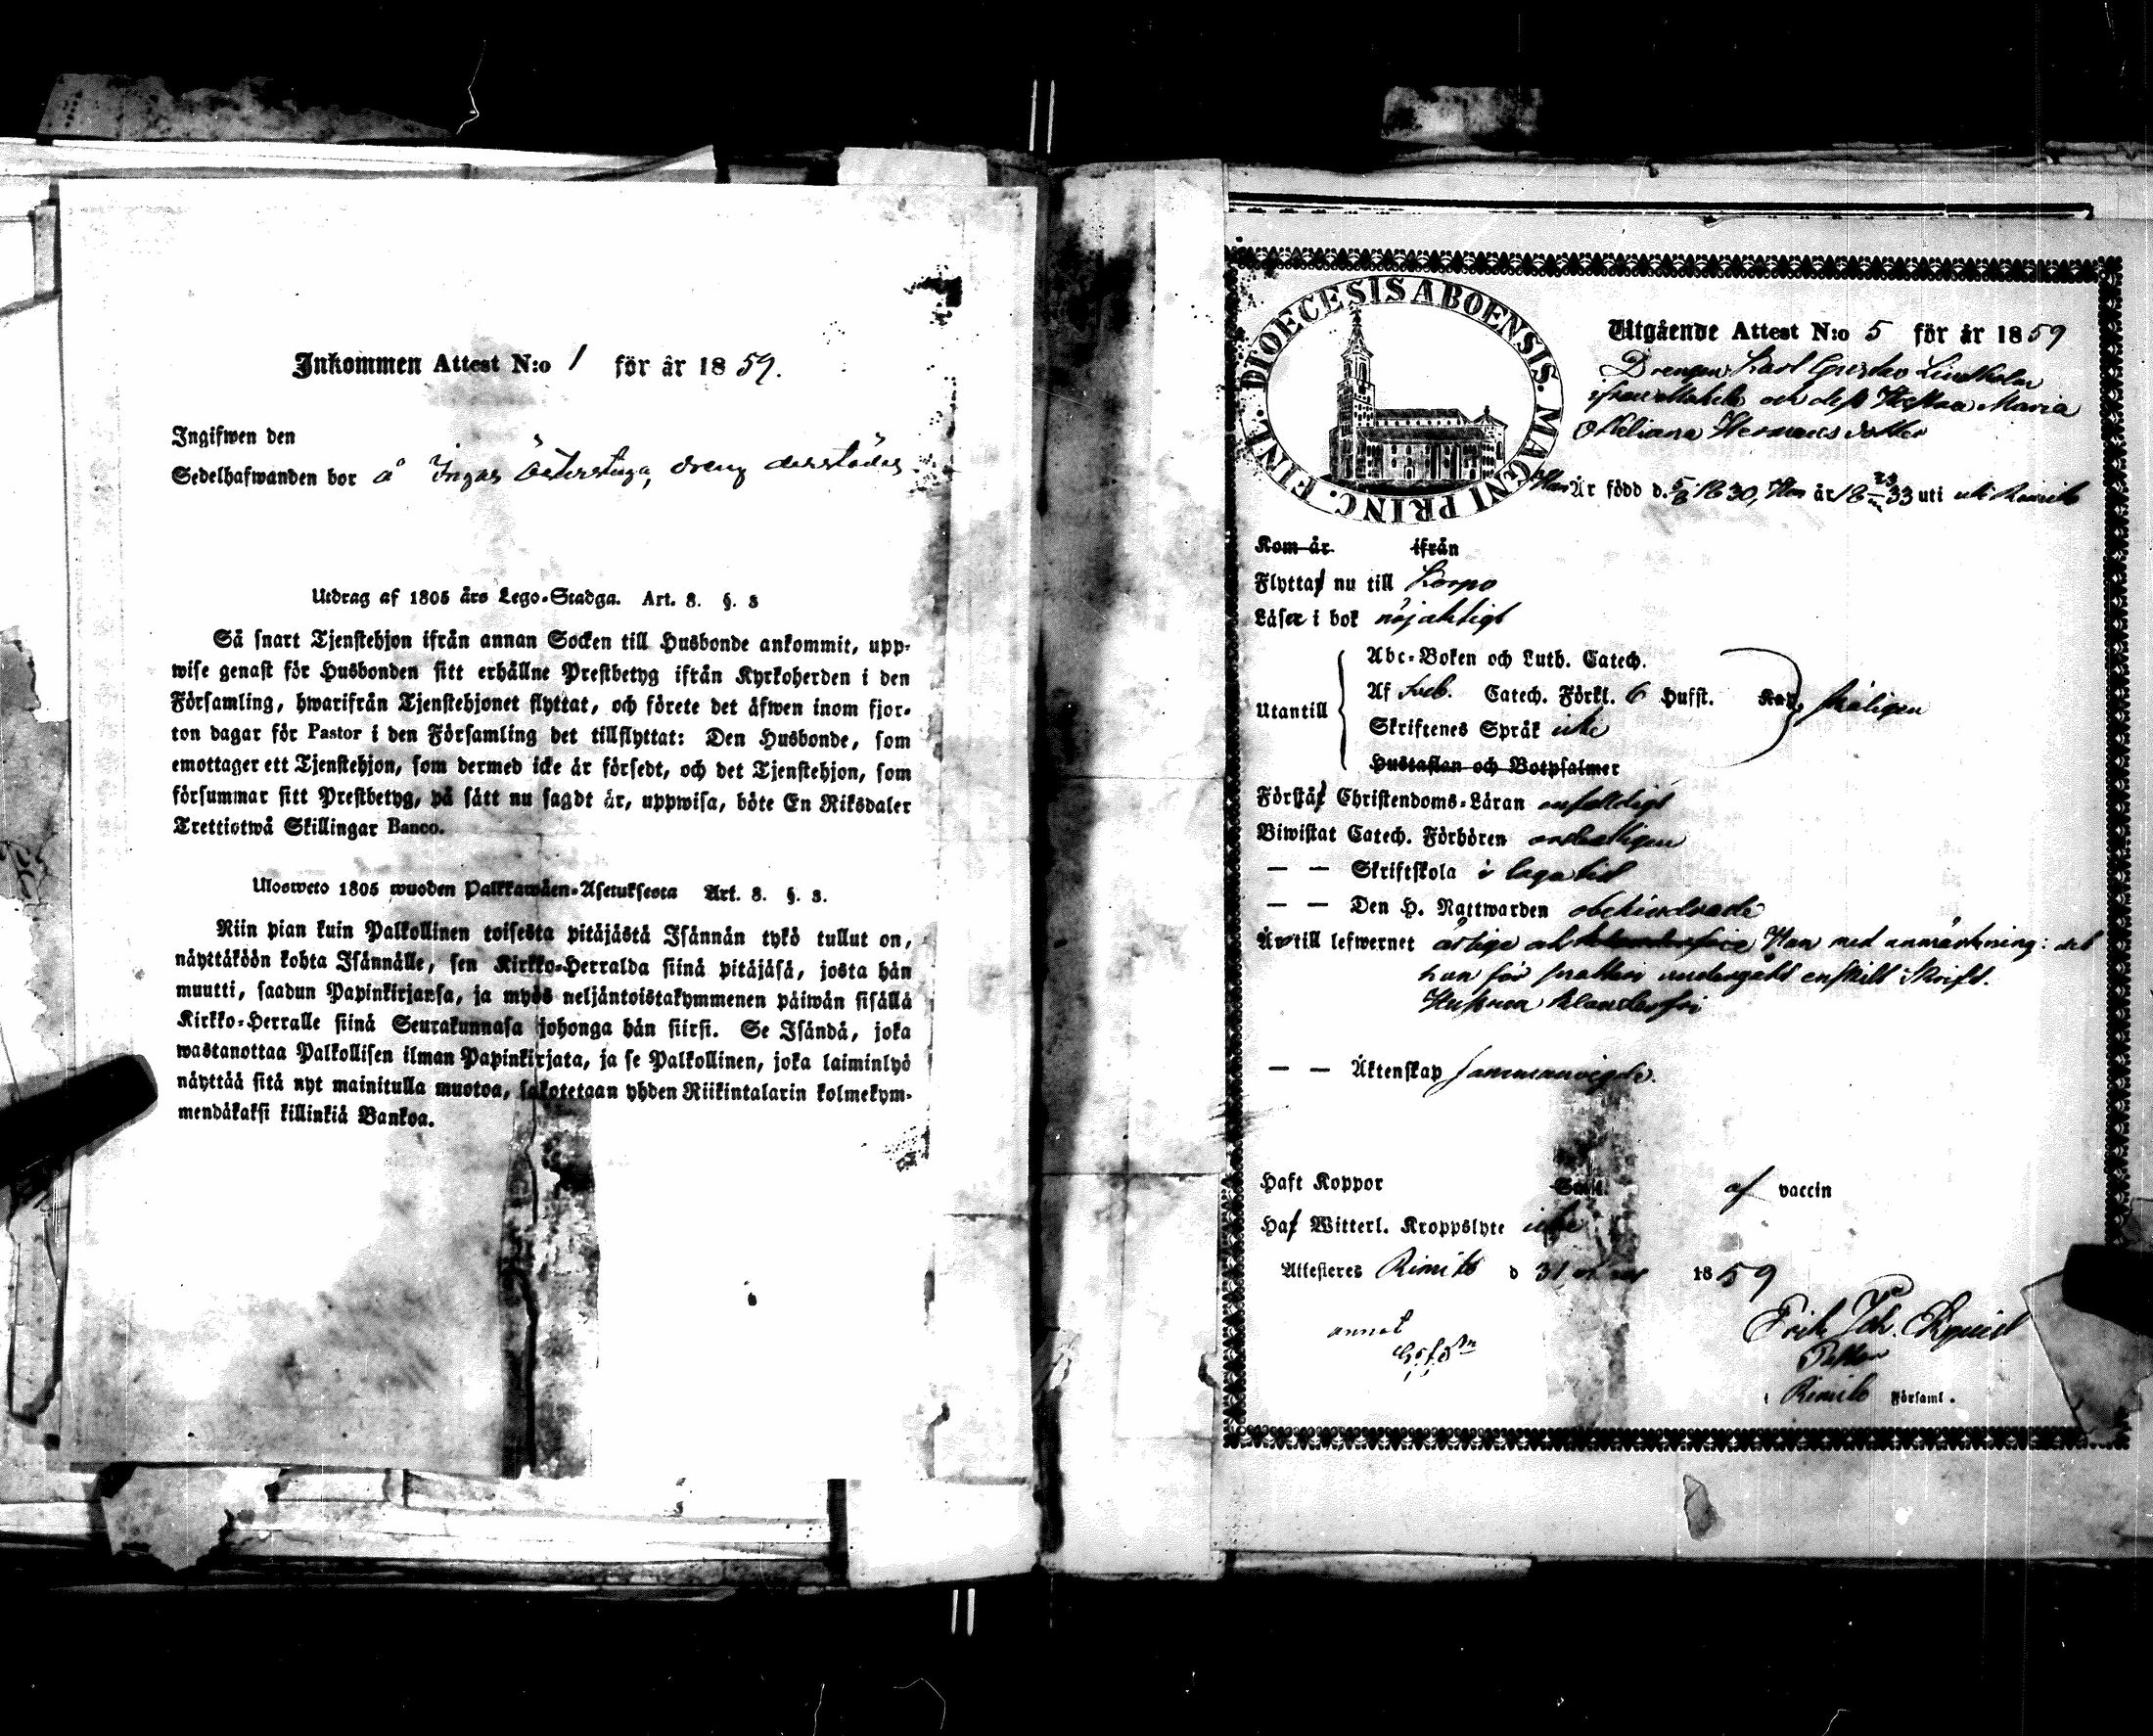 Inkommen Attest N:o 1 för år 1859.
Ingifwen den
Sedelhafwanden bor å Ingas Österstuga, dreng derstädes
Utdrag af 1805 års Lego-Stadga. Art. 8. §. 3
Så snart Tjenstehjon ifrån annan Socken till Husbonde ankommit, upp-
wise genast för Husbonden sitt erhållne Prestbetyg ifrån Kyrkoherden i den
Församling, hwarifrån Tjenstehjonet flyttat, och förete det äfwen inom fjor-
ton dagar för Pastor i den Församling det tillflyttat: Den Husbonde, som
emottager ett Tjenstehjon, som dermed icke är försedt, och det Tjenstehjon, som
försummar sitt Prestbetyg, på sätt nu sagdt är, uppwisa, böte En Riksdaler
Trettiotwå Skillingar Banco.
Ulosweto 1805 wuoden Palkkawäen-Asetuksesta Art. 8. §. 3.
Niin pian kuin Palkollinen toisesta pitäjästä Isännän tykö tullut on,
näyttäköön kohta Isännälle, sen Kirkko-Herralda siinä pitäjäsä, josta hän
muutti, saadun Papinkirjansa, ja myös neljäntoistakymmenen päiwän sisällä
Kirkko-Herralle siinä Seurakunnasa johonga hän siirsi. Se Isändä, joka
wastanottaa Palkollisen ilman Papinkirjata, ja se Palkollinen, joka laiminlyö
näyttää sitä nyt mainitulla muotoa, sakotetaan yhden Riikintalarin kolmekym-
mendäkaksi killinkiä Bankoa.
DIOECESIS ABOENSIS. MAGNI PRINC. FINL.
Utgående Attest N:o 5 för år 1859
Drengen Karl Gustav Lindholm
ifrån och dess Hustru Maria
Hermansdotter
Han Är född d. 5/8 1830, Hon är 18 33 uti Rimito
Kom år ifrån
Flytta nu till Korpo
Läsa i bok nöjaktigt
Utantill
Abc-Boken och Luth. Catech.
Af Sveb. Catech. Förkl. 6 Hufst. Kan skäligen
Skriftenes Språk icke
Hustaflan och Botpsalmer
Förstå Christendoms-Läran enfaldigt
Biwistat Catech. Förhören ordentligen
— — Skriftskola i laga tid
— — Den H. Nattwarden obehindrade
Är till lefwernet ärlige och Han med anmärkning: att
han för undergått enskilt skrift.
Hustrun klanderfri
— — Äktenskap sammanvigde.
Haft Koppor af vaccin
Haf Witterl. Kroppslyte icke
Attesteres Rimito d 31 1859
Erik Joh.
i Rimito Församl.